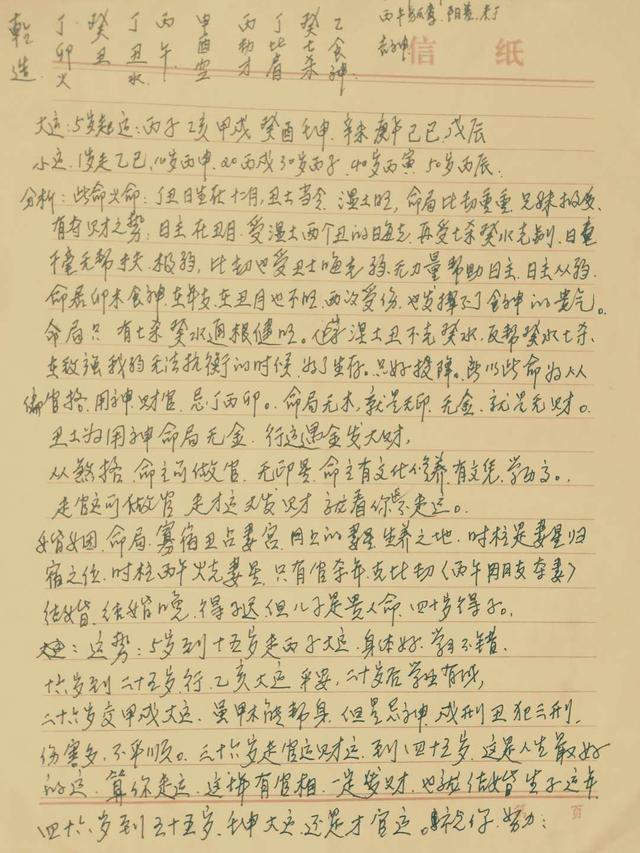 乾 丁 癸 丁 丙 甲 丙 丁 癸 乙
造 卯 丑 丑 午 酉 劫 比 七 食
火 水 空 才 肩 杀 神
丙午 阳差
信纸
大运:5岁起运:丙子 乙亥 甲戌 癸酉 壬申 辛未 庚午 己巳 戊辰
小运 1岁走乙巳,10岁丙申 20丙戌 30岁丙子 40岁丙寅 50岁丙辰.
分析:此命火命:丁丑日生在十二月,丑土当令 湿土旺,命局比劫重重 兄妹
有夺财之势:日主在丑月.受湿土两个丑的晦克 再受七杀癸水克制 日主
千毫无帮扶.极弱,比劫也受丑土晦克 弱.无力量帮助日主.日主从弱.
命局卯木食神在年支.在丑月也不旺.两次受伤.也发挥不了食神的贵气。
命局只有七杀癸水通根健旺。湿土丑不克癸水.反帮癸水七杀.
在敌强我弱无法抗衡的时候 为了生存.只好投降。所以此命为从
偏官格.用神财官.忌丁丙卯。命局无木,就是无印.无金.就是无财。
丑土为用神命局无金.行运遇金发大财,
从煞格.命主可做官.无印星.命主有文化修养.有文凭.学历高。
走官运可做官.走才运又发财.就看你走运。
婚姻.命局.寡宿丑占妻宫.月上的妻星生养之地.时柱是妻星归
宿之位.时柱丙午火克妻星.只有官杀年.克比劫(丙午月朋友夺妻)
结婚.结婚晚.得子迟.但儿子是贵人命.四十岁得子。
运势:5岁到十五岁走丙子大运.身体好.学习不错.
十六岁到二十五岁行.乙亥大运.平安,二十岁后学业有成,
二十六岁交甲戌大运.虽甲木能帮身.但是忌神.戌刑丑犯三刑.
伤害多.不平顺。三十六岁走官运财运.到四十五岁.这是人生最好
的运.算你走运.这样有官相.一定发财.也就结婚生子这年
四十六岁到五十五岁.壬申大运.还是才官运。祝你.努力:
页